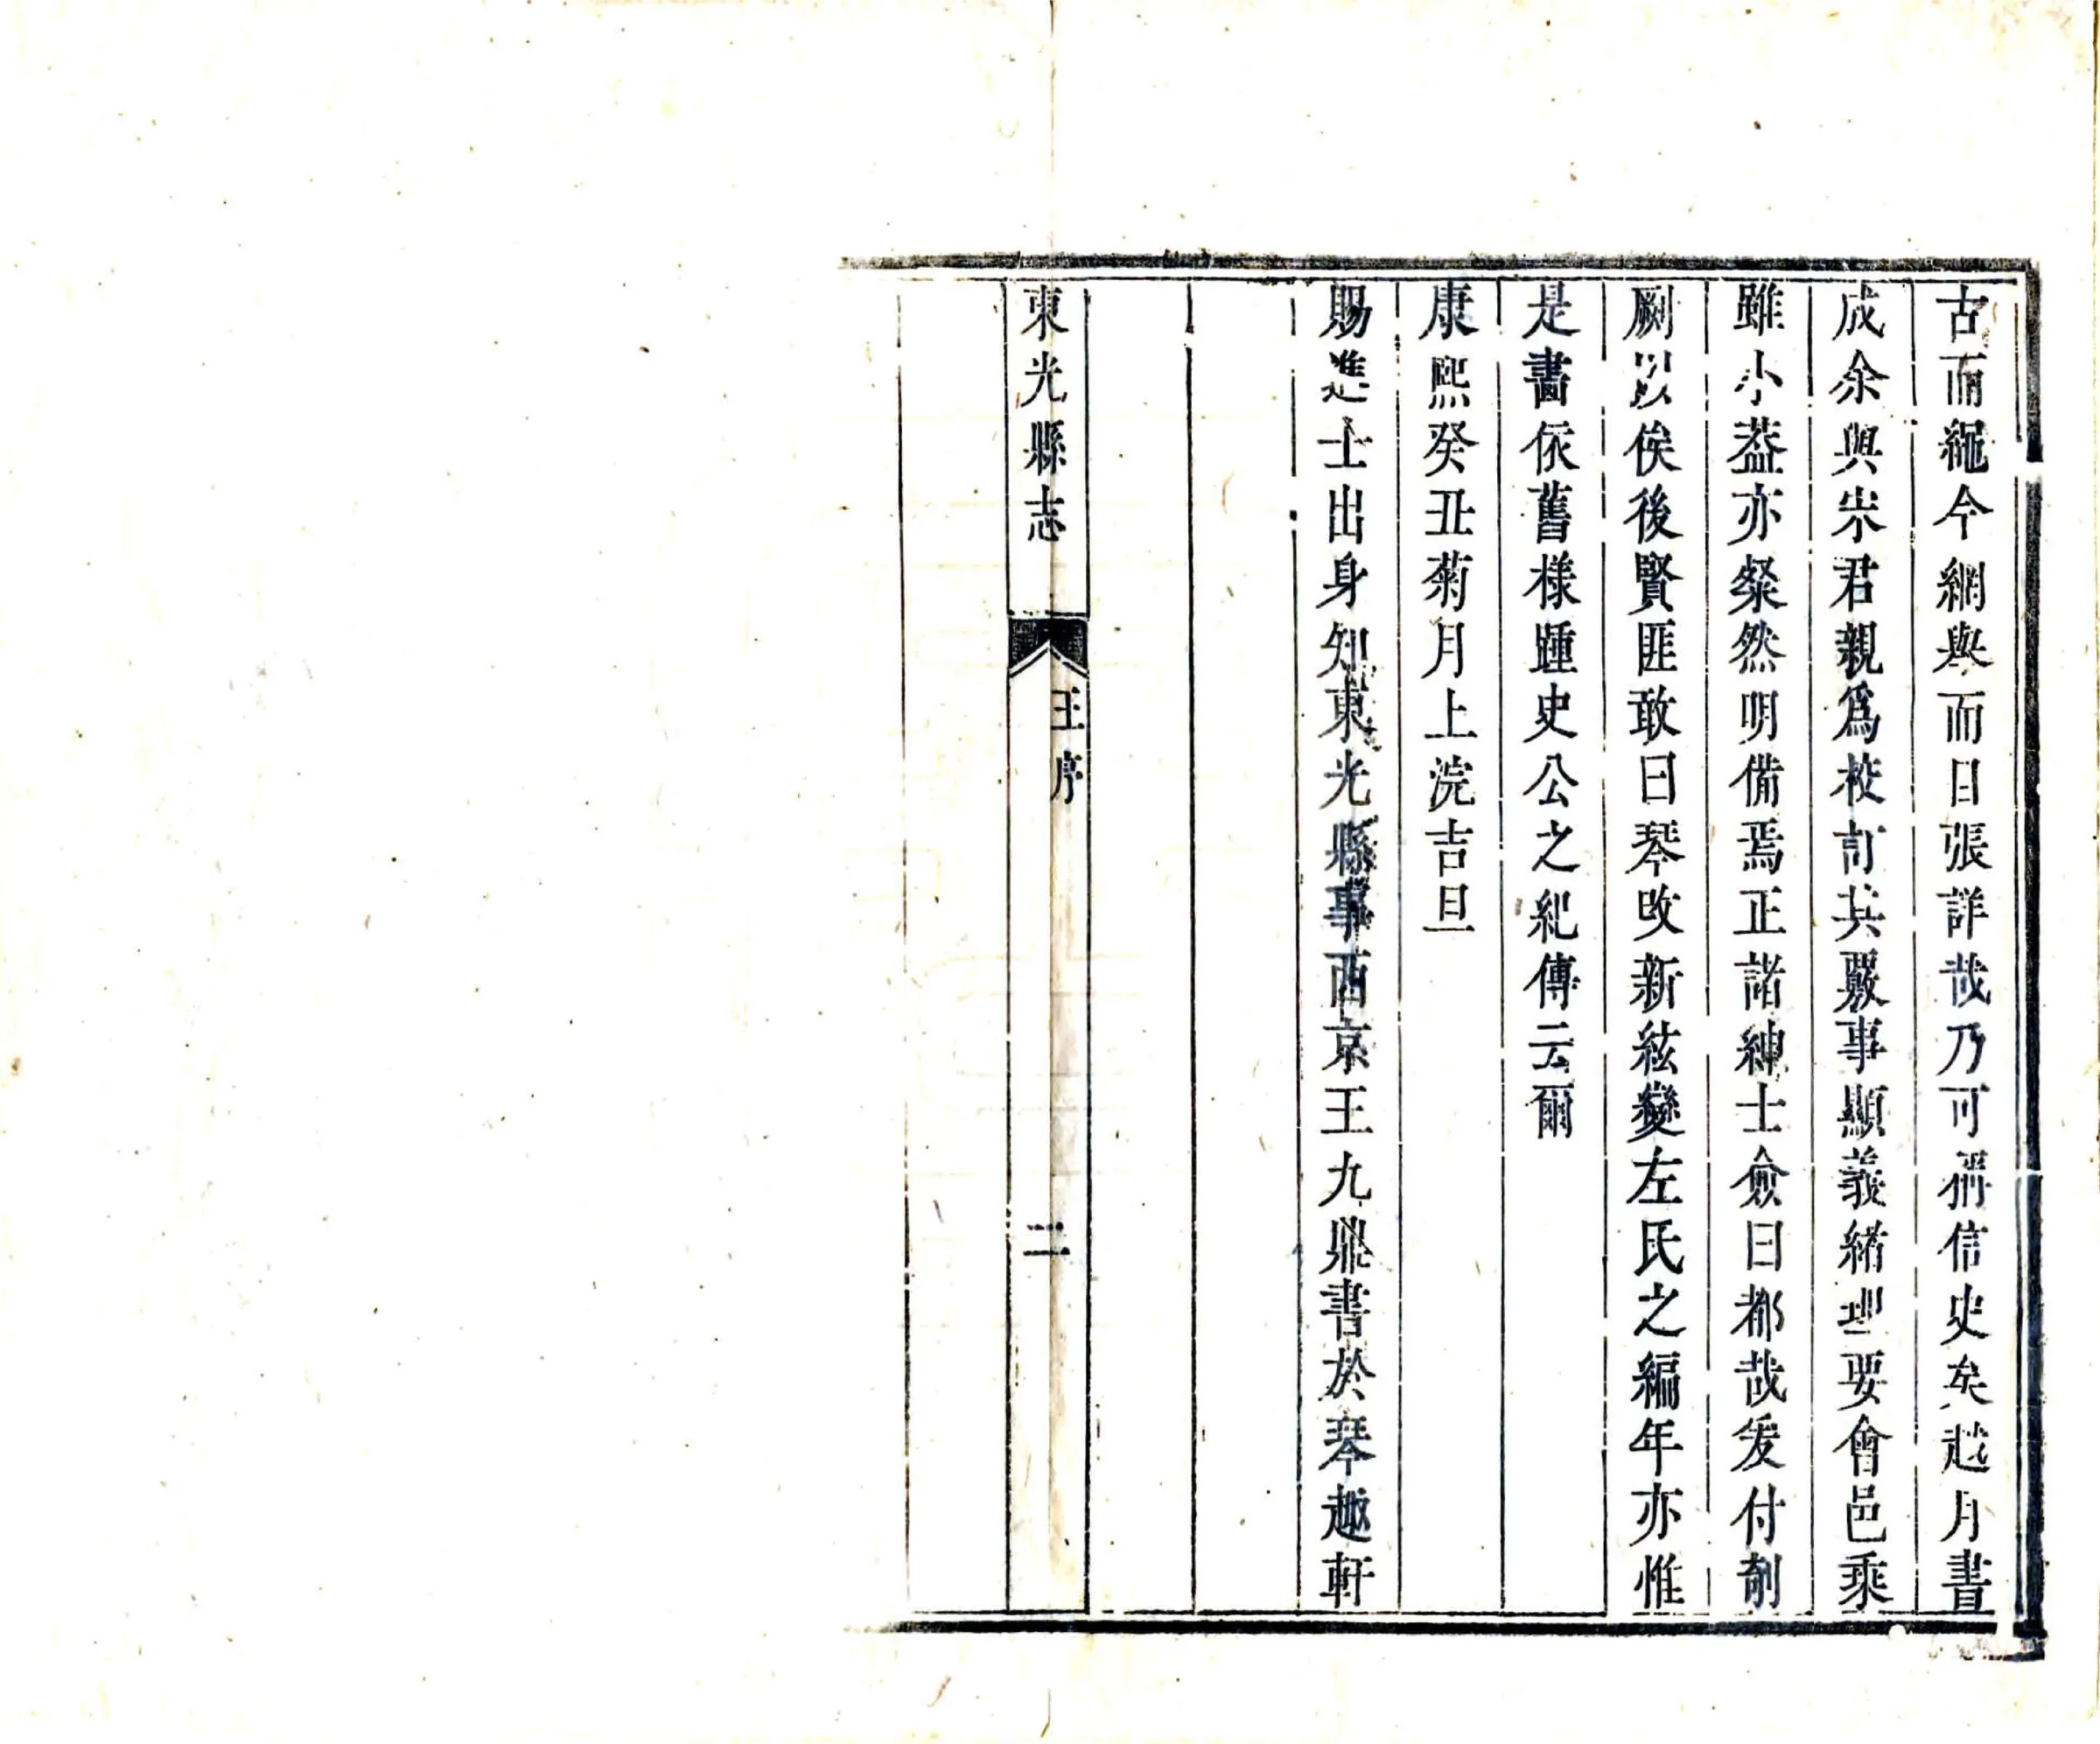 古而繩今網與而目張詳哉乃可稱信史矣越月書
成余與宋君親爲校訂其覈事顯義緒理要會邑乘
雖小葢亦粲然明備焉正諸紳士僉曰都哉爰付剞
劂以俟後賢匪敢曰琴改新絃變左氏之編年亦惟
是書依舊様踵史公之紀傳云爾
康熙癸丑菊月上浣吉旦
賜進士出身知東光縣事西京王九鼎書於琴趣軒
東光縣志 王序 二